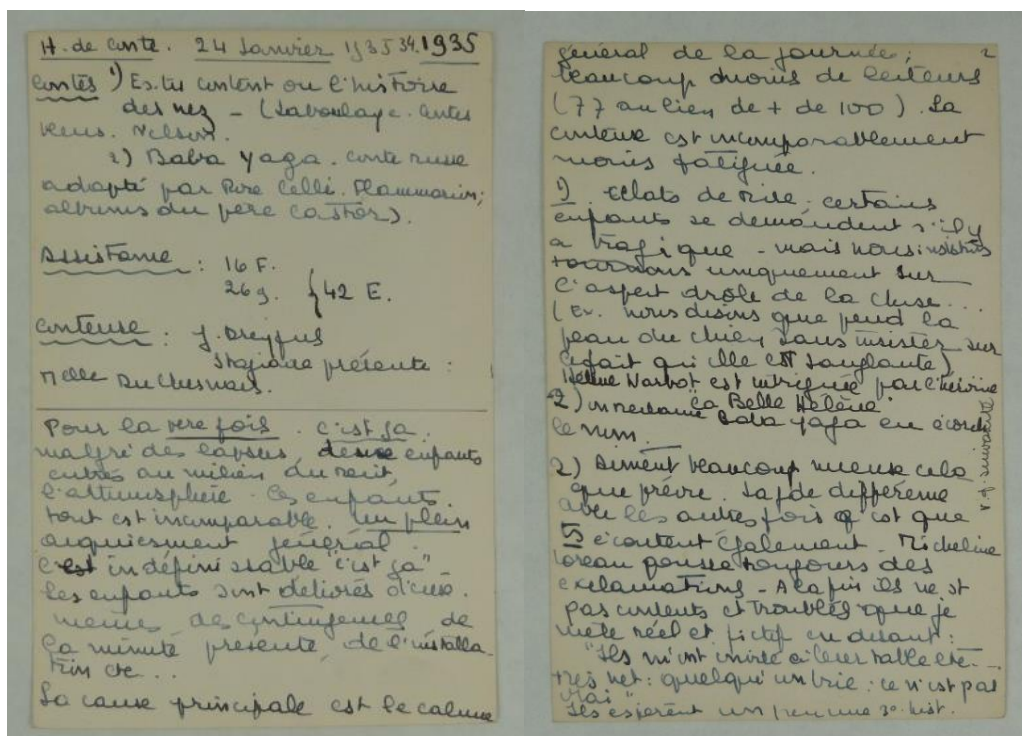 H. de conte. 24 Janvier 1935 34. 1935
Contes 1) Es-tu content ou l'histoire
des nez - (Laboulaye. Contes
bleus. Nelson.
2) Baba Yaga. conte russe
adapté par Rose Celli. Flammarion;
albums du père Castor).
Assistance : 16 F.
26 g. 42 E.
Conteuse : J. Dreyfus
Stagiaire présente :
Melle Duchesnais.
Pour la 1ere fois. C'est ça.
malgré des lapsus, enfants
entrés au milieu du récit,
l'atmosphère les enfants
tout est incomparable. Un plein
acquiescement général.
C'est indéfinissable "c'est ça"
les enfants sont délivrés d'eux.
mêmes des contingences de
la minute présente, de l'installa.
tion etc...
La cause principale est le calme
2
général de la journée;
beaucoup moins de lecteurs
(77 au lieu de + de 100). La
conteuse est incomparablement
moins fatiguée.
1). éclats de rire. certains
enfants se demandent s'il y
a tragique - mais nous insistons
uniquement sur
l'aspect drôle de la chose..
(Ex. nous disons que pend la
peau du chien sans insister sur
qu'elle est sanglante)
Hélène Narbot est intriguée par l'héroïne
"La Belle Hélène"
2) on réclame Baba Yaga en
le nom.
2) Aiment beaucoup mieux cela
que prévu. La gde différence
avec les autres fois c'est que
écoutent également. Micheline
Loreau pousse toujours des
exclamations - A la fin ils ne st
pas contents et troublés que je
mêle réel et fictif en disant :
"Ils m'ont invité à leur table etc -
très net : quelqu'un crie : ce n'est pas
vrai"
Ils espèrent un peu une 3e hist.